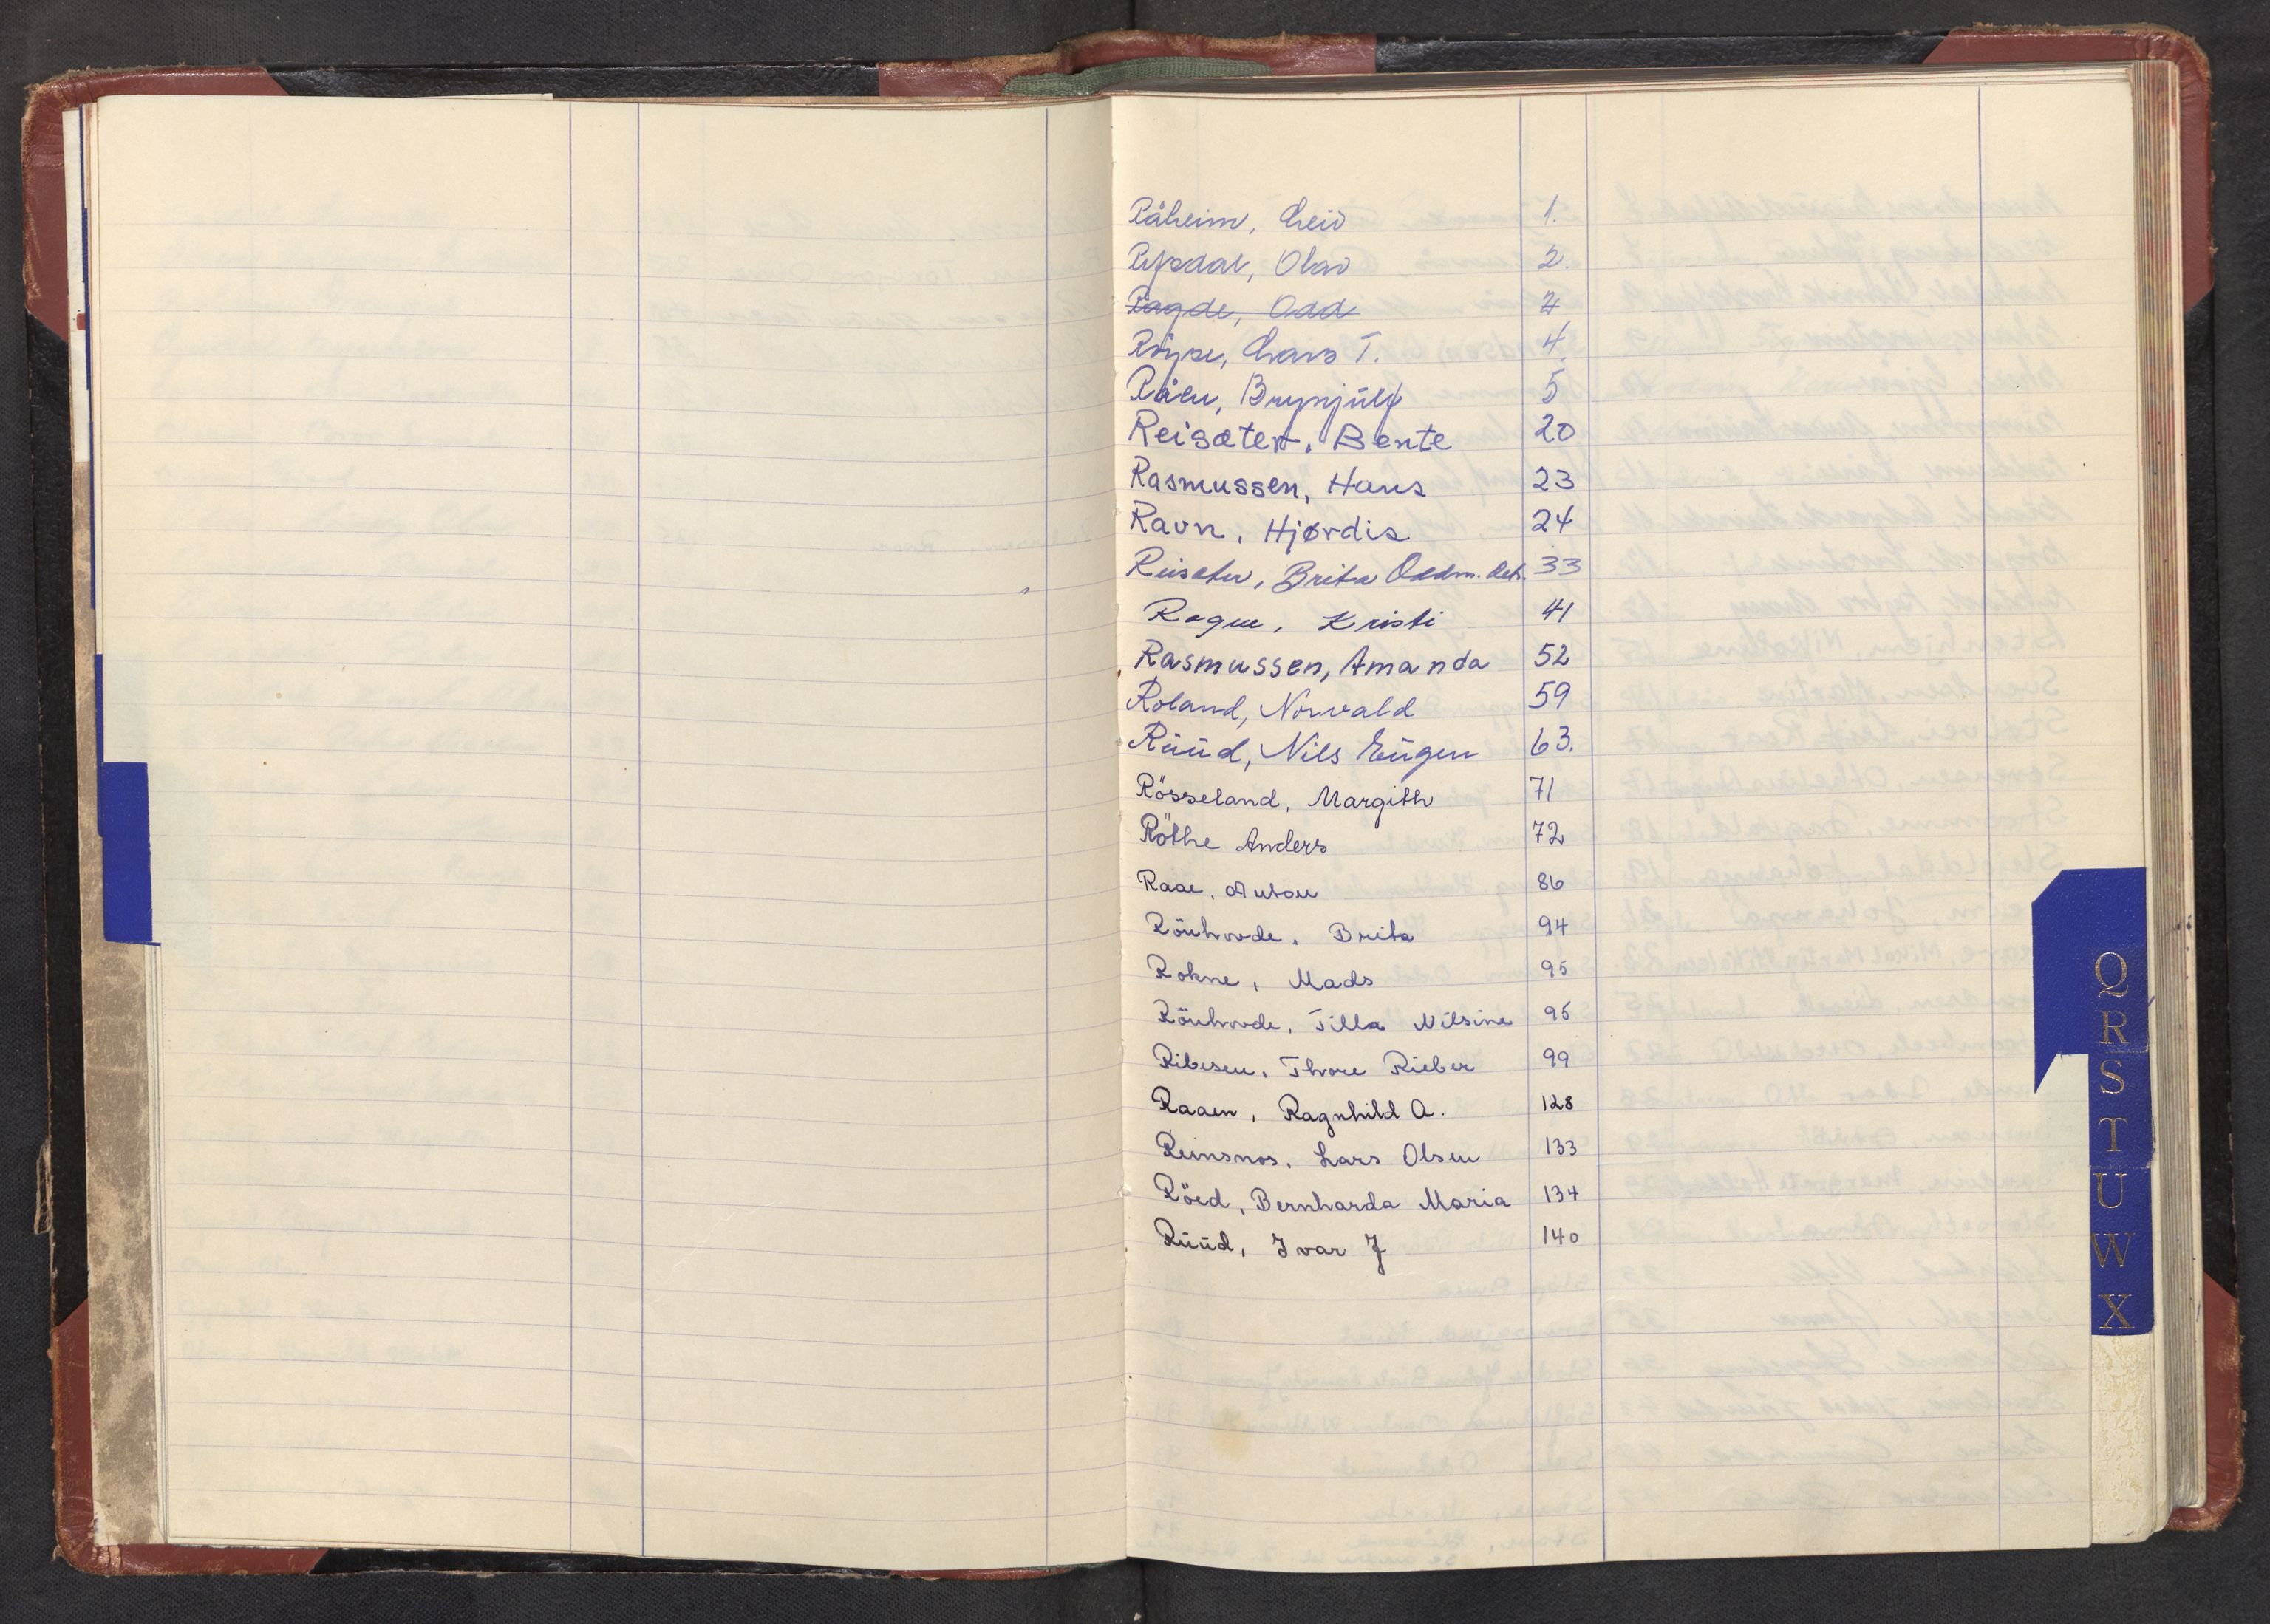 Råheim, Leiv 1.
Rysdal, Olav 2.
Ragde, Odd
Röyse, Lars T. 4.
Råen, Brynjulf 5
Reisæter, Bente 20
Rasmussen, Hans 23
Ravn, Hjørdis 24
Reisæter, Brita Oddm. 33
Kristi 41
Rasmussen, Amanda 52
Roland, Norvald 59
Rüüd, Nils Eügen 63.
Rösseland, Margith 71
Röthe Anders 72
Raae, Anton 86
Rönhovde, Brita 94
Rokne, Mads 95
Rönhovde, Tilla Nilsine 95
Ribesen, Thore Rieber 99
Raaen, Ragnhild A. 128
Reinsnos, Lars Olsen 133
Röed, Bernharda Maria 134
Rüüd, Ivar J 140
Q
R
S
T
U
W
X